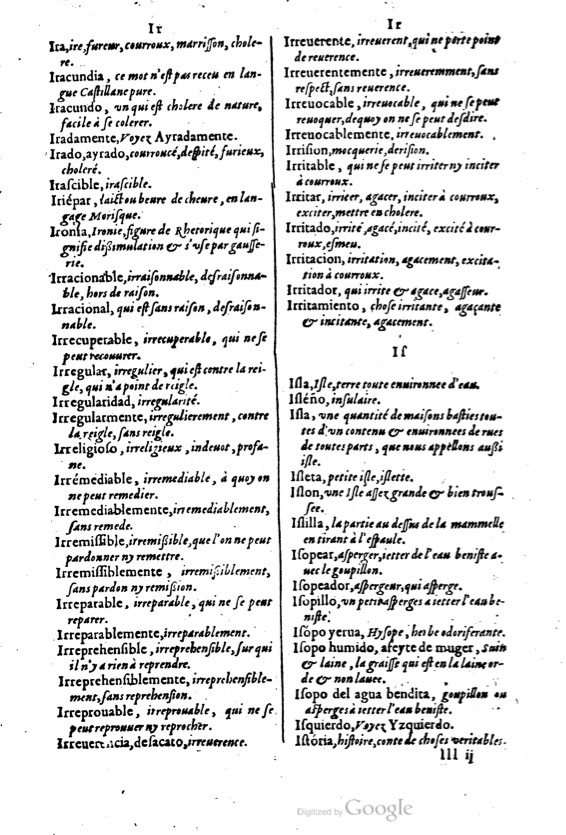 Ir
Ira, ire, fureur, courroux, marrisson, chole-
re.
Iracundia, ce mot n'est pas receu en lan-
gue Castillane pure.
Iracundo, un qui est cholere de nature,
facile à se colerer.
Iradamente, Voyez Ayradamente.
Irado, ayrado, courroucé, despité, furieux,
choleré.
Irascible, irascible.
Iriépar, laict ou beure de cheure, en lan-
gage Morisque.
Ironia, Ironie, figure de Rhetorique qui si-
gnifie dißimulation & s'use par gausse-
rie.
Irracionable, irraisonnable, desraisonna-
ble, hors de raison.
Irracional, qui est sans raison, desraison-
nable.
Irrecuperable, irrecuperable, qui ne se
peut recouurer.
Irregular, irregulier, qui est contre la rei-
gle, qui n'a point de reigle.
Irregularidad, irregularité.
Irregularmente, irregulierement, contre
la reigle, sans reigle.
Irreligioso, irreligieux, indeuot, profa-
ne.
Irrémediable, irremediable, à quoy on
ne peut remedier.
Irremediablemente, irremediablement,
sans remede.
Irremissible, irremißible, que l'on ne peut
pardonner ny remettre.
Irremissiblemente, irremißiblement,
sans pardon ny remißion.
Irreparable, irreparable, qui ne se peut
reparer.
Irreparablemente, irreparablement.
Irreprehensible, irreprehensible, sur qui
il n'y a rien à reprendre.
Irreprehensiblemente, irreprehensible-
ment, sans reprehension.
Irreprouable, irreprouable, qui ne se
peut reprouuer ny reprocher.
Irreuerencia, desacato, irreuerence.
Ir
Irreuerente, irreuerent, qui ne porte point
de reuerence.
Irreuerentemente, irreueremment, sans
respect, sans reuerence.
Irreuocable, irreuocable, qui ne se peut
reuoquer, dequoy on ne se peut desdire.
Irreuocablemente, irreuocablement.
Irrision, mocquerie, derision.
Irritable, qui ne se peut irriter ny inciter
à courroux.
Irritar, irriter, agacer, inciter à courroux,
exciter, mettre en cholere.
Irritado, irrité, agacé, incité, excité à cour-
roux, esmeu.
Irritacion, irritation, agacement, excita-
tion à courroux.
Irritador, qui irrite & agace, agasseur.
Irritamiento, chose irritante, agaçante
& incitante, agacement.
Is
Isla, Isle, terre toute enuironnee d'eau.
Isléño, insulaire.
Isla, une quantité de maisons basties tou-
tes d'un contenu & enuironnees de rues
de toutes parts, que nous appellons außi
isle.
Isleta, petite isle, islette.
Islon, une Isle assez grande & bien trous-
see.
Islilla, la partie au dessus de la mammelle
en tirant à l'espaule.
Isopear, asperger, ietter de l'eau beniste a-
uec le goupillon.
Isopeador, aspergeur, qui asperge.
Isopillo, un petit asperges a ietter l'eau be-
niste.
Isópo yerua, Hysope, herbe odoriferante.
Isopo humido, afeyte de muger, suin
& laine, la graisse qui est en la laine or-
de & non lauee.
Isopo del agua bendita, goupillon ou
asperges à ietter l'eau beniste.
Isquierdo, Voyez Yzquierdo.
Istória, histoire, conte de choses veritables.
lll ij
Digitized by Google